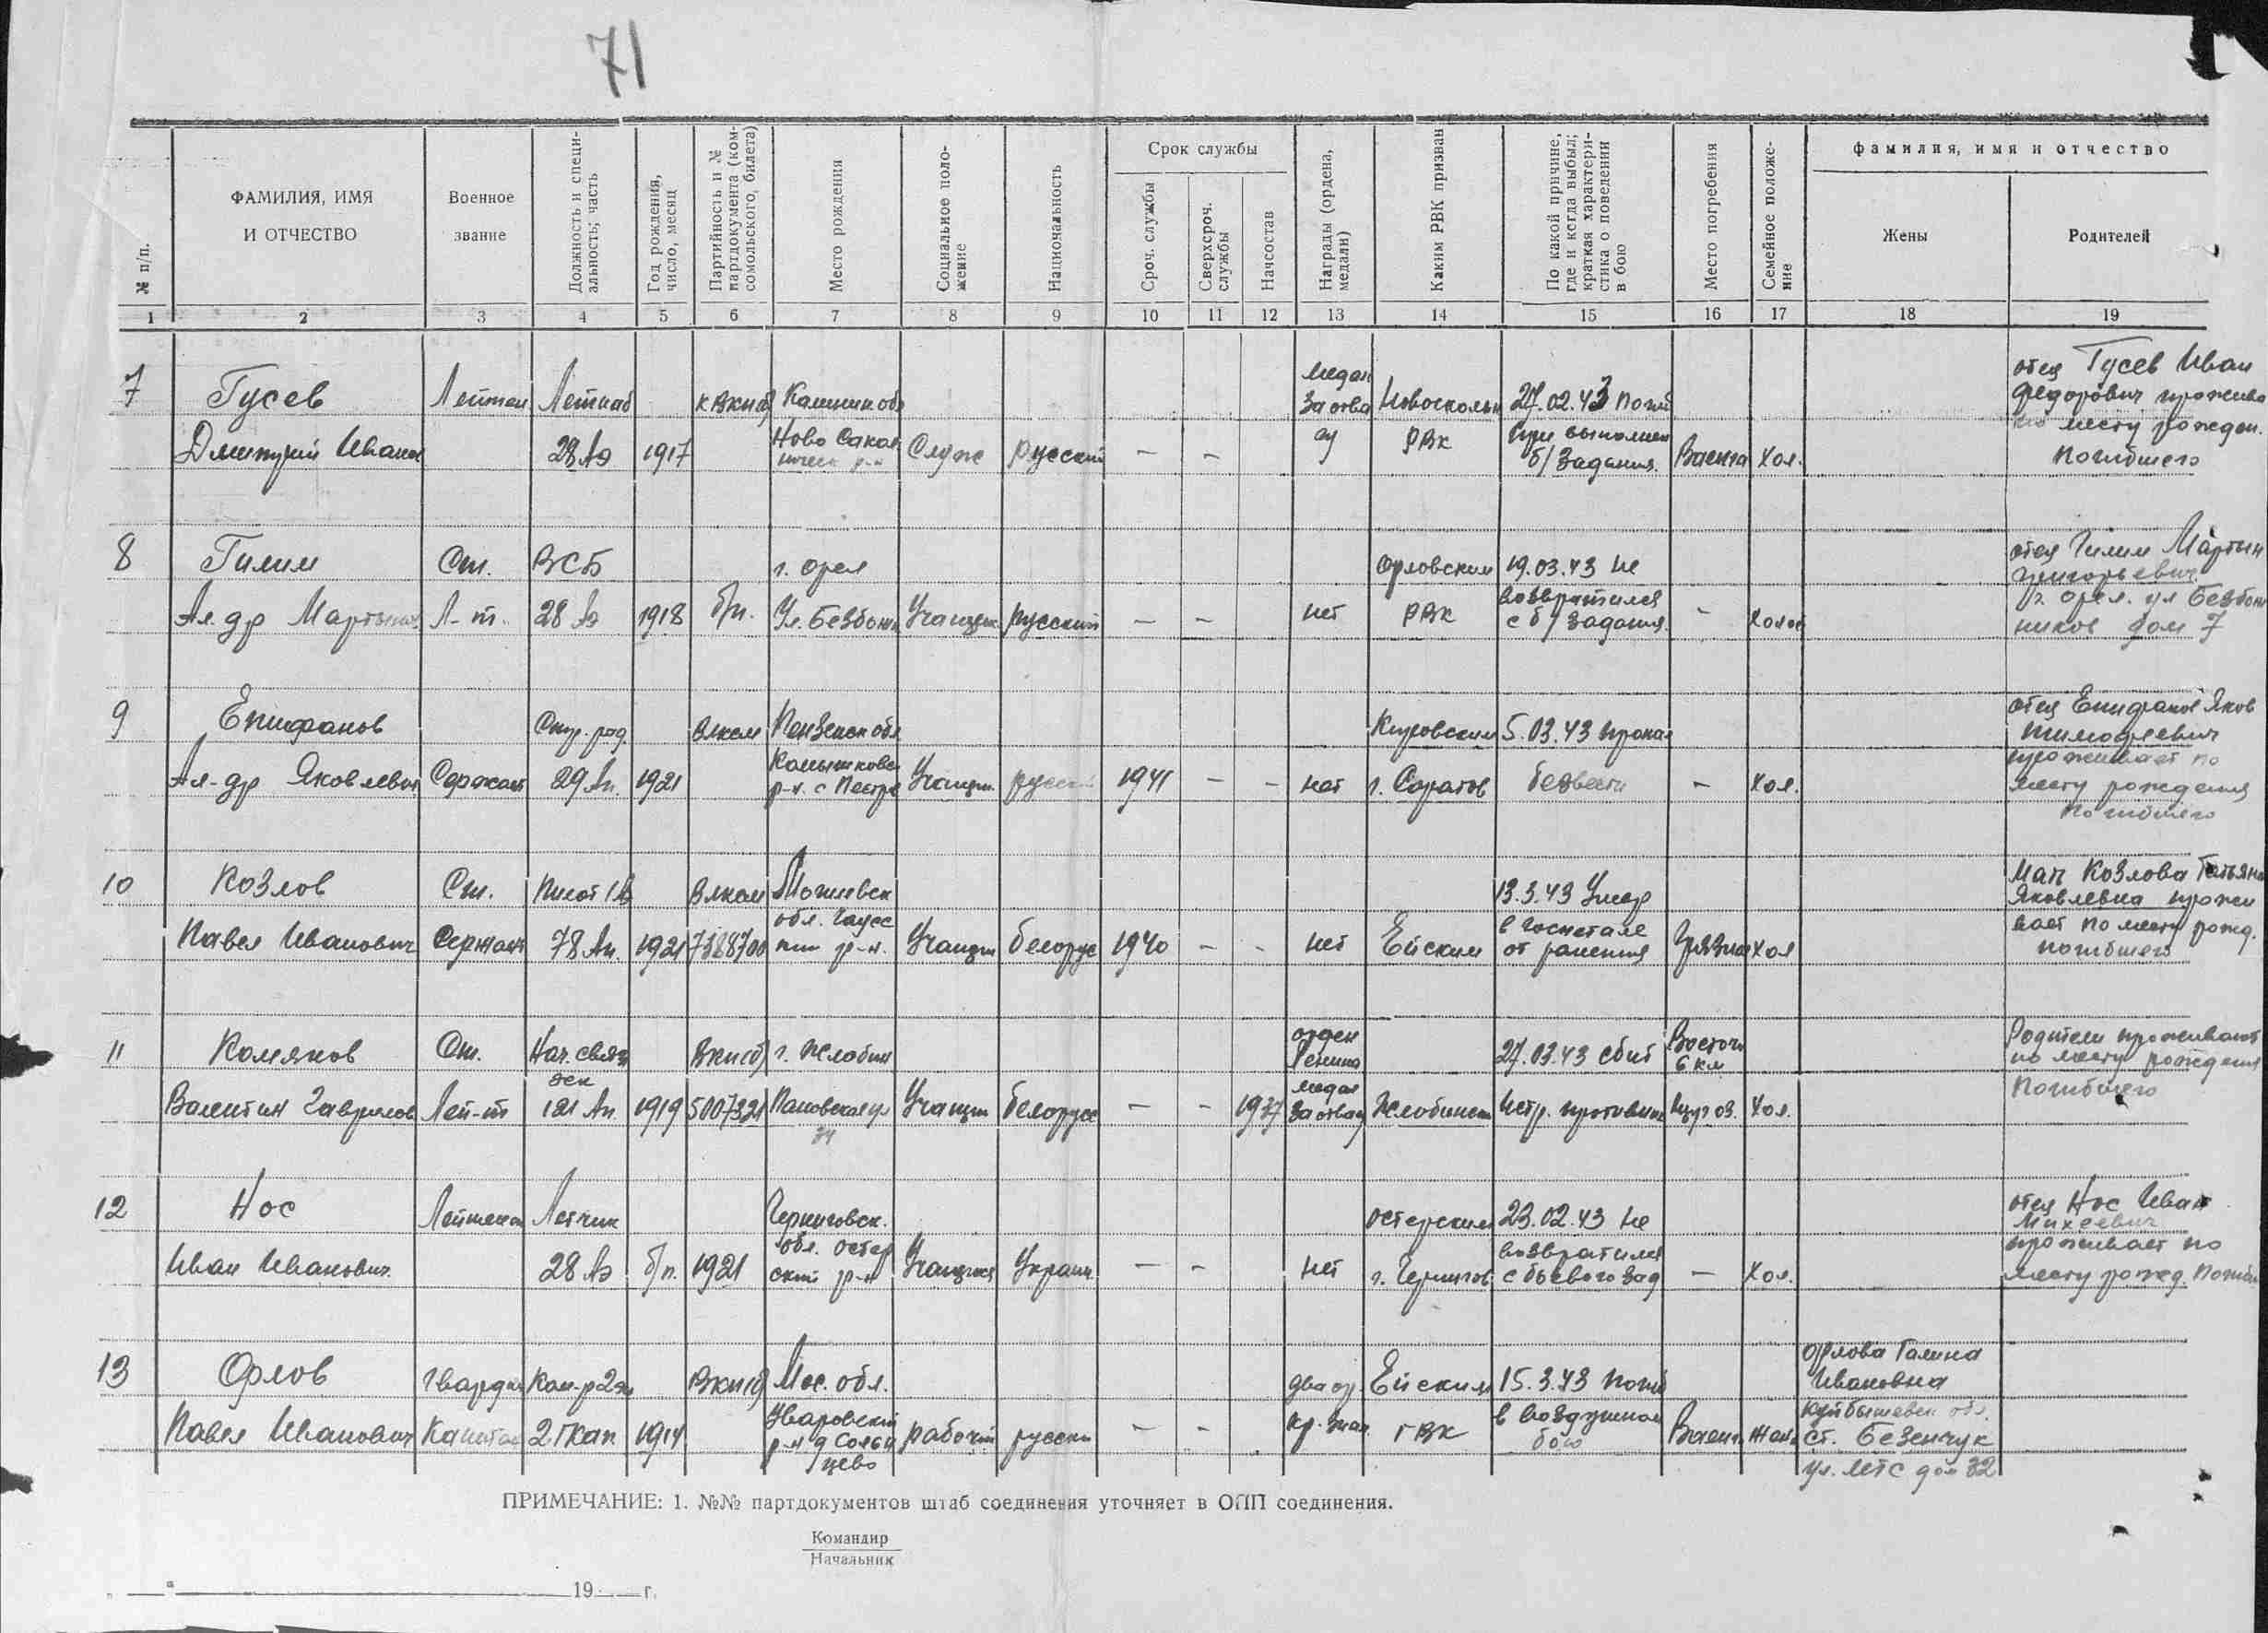 71
Срок службы
фамилия, имя и отчество
№ п/п.
ФАМИЛИЯ, ИМЯ
И ОТЧЕСТВО
Военное
звание
Должность и специ-
альность; часть
Год рождения,
число, месяц
Партийность и №
партдокумента (ком-
сомольского, билета)
Место рождения
Социальное поло-
жение
Национальность
Сроч. службы
Сверхсроч.
службы
Начсостав
Награды (ордена,
медали)
Каким РВК призван
По какой причине,
где и когда выбыл;
краткая характери-
стика о поведении
в бою
Место погребения
Семейное положе-
ние
Жены
Родителей
1 2 3 4 5 6 7 8 9 10 11 12 13 14 15 16 17 18 19
7
Гусев
Дмитрий Иванов
Летнаб
28 Аэ
1917
Служ
русский
— —
РВК
27.02.43 погиб
при выполнен
б/задания.
Ваенга
хол.
отец Гусев Иван
Федорович прожива
по месту рожден.
погибшего
8
Гилим
Ал-др Мартынов
Ст.
Л-т.
ВСБ
28 Аэ
1918
б/п.
г. Орел
Ул. Безбожн
Учащ
русский
— —
нет
Орловским
РВК
19.03.43 не
возвратился
с б/задания.
—
отец Гилим Мартын
Григорьевич
г. Орел. ул Безбож
ников дом 7
9
Епифанов
Ал-др Яковлевич
Сержант
Стр. рад.
29 Ап.
1921
Влксм
Пензенск обл
Учащ.
русск
1941
— —
нет
Кировским
г. Саратов
5.03.43 пропал
безвести
—
хол.
отец Епифанов Яков
Тимофеевич
проживает по
месту рождения
погибшего
10
Козлов
Павел Иванович
Ст.
Сержант
Пилот
78 Ап.
1921
Влксм
7388700
Могилевск
обл.
р-н.
Учащ
белорус
1940
— —
нет
Ейским
13.3.43 Умер
в госпитале
от ранения
Грязная
хол
Мать Козлова Татьяна
Яковлевна прожи
вает по месту рожд.
погибшего
11
Комяков
Валентин Гаврилов
Ст.
Лей-т
Нач. связ
эск
121 Ап.
1919
Вкп(б)
5007321
г. Жлобин
Учащ
белорусс
— —
1937
орден
Ленина
медал
За отвагу
Жлобинск
27.03.43 сбит
истр. противник
Восточн
6 км
хол.
Родители проживают
по месту рождения
погибшего
12
Нос
Иван Иванович.
Лейтенан
Летчик
28 Аэ
б/п.
1921
Черниговск.
обл. Остер
ский р-н
Учащийся
Украин.
— —
нет
Остерским
г. Чернигов
23.02.43 не
возвратился
с боевого зад
—
хол.
отец Нос Иван
Михеевич
проживает по
месту рожд. погибш
13
Орлов
Павел Иванович
Гвардии
Капитан
Ком-р 2 эс
2 ГКАП
1914
Вкп(б)
Мос. обл.
Уваровский
рабочий
русски
— —
два ор.
кр. знам.
Ейским
ГВК
15.3.43 погиб
в воздушном
бою
Ваенг.
жен.
Орлова Галина
Ивановна
Куйбышевск обл.
ст. Безенчук
ул. МТС дом 32
ПРИМЕЧАНИЕ: 1. №№ партдокументов штаб соединения уточняет в ОПП соединения.
Командир
Начальник
„ " 19 г.